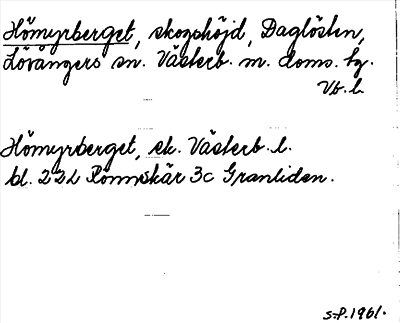 Hömyrberget, skogshöjd, Daglösten,
Lövångers sn. Västerb. m. doms. tg.
Vb. l.
Hömyrberget, ek. Västerb. l.
bl. 22L Rönnskär 3c Granliden.
S.P. 1961.